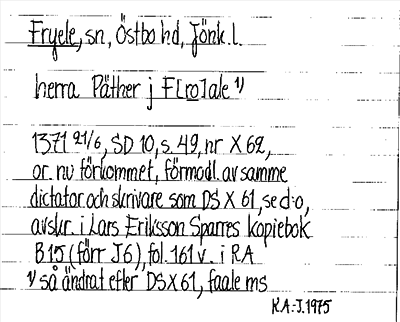 Fryele, sn, Östbo hd, Jönk. l.
herra Päther j F[ro]ale 1)
1371 21/6, SD 10, s. 49, nr X 62,
or. nu förkommet, förmodl. av samme
dictator och skrivare som DS X 61, se d:o,
avskr. i Lars Eriksson Sparres kopiebok
B 15 (förr J 6), fol. 161 v. i RA
1) så ändrat efter DS X 61, faale ms
K.A.-J. 1975